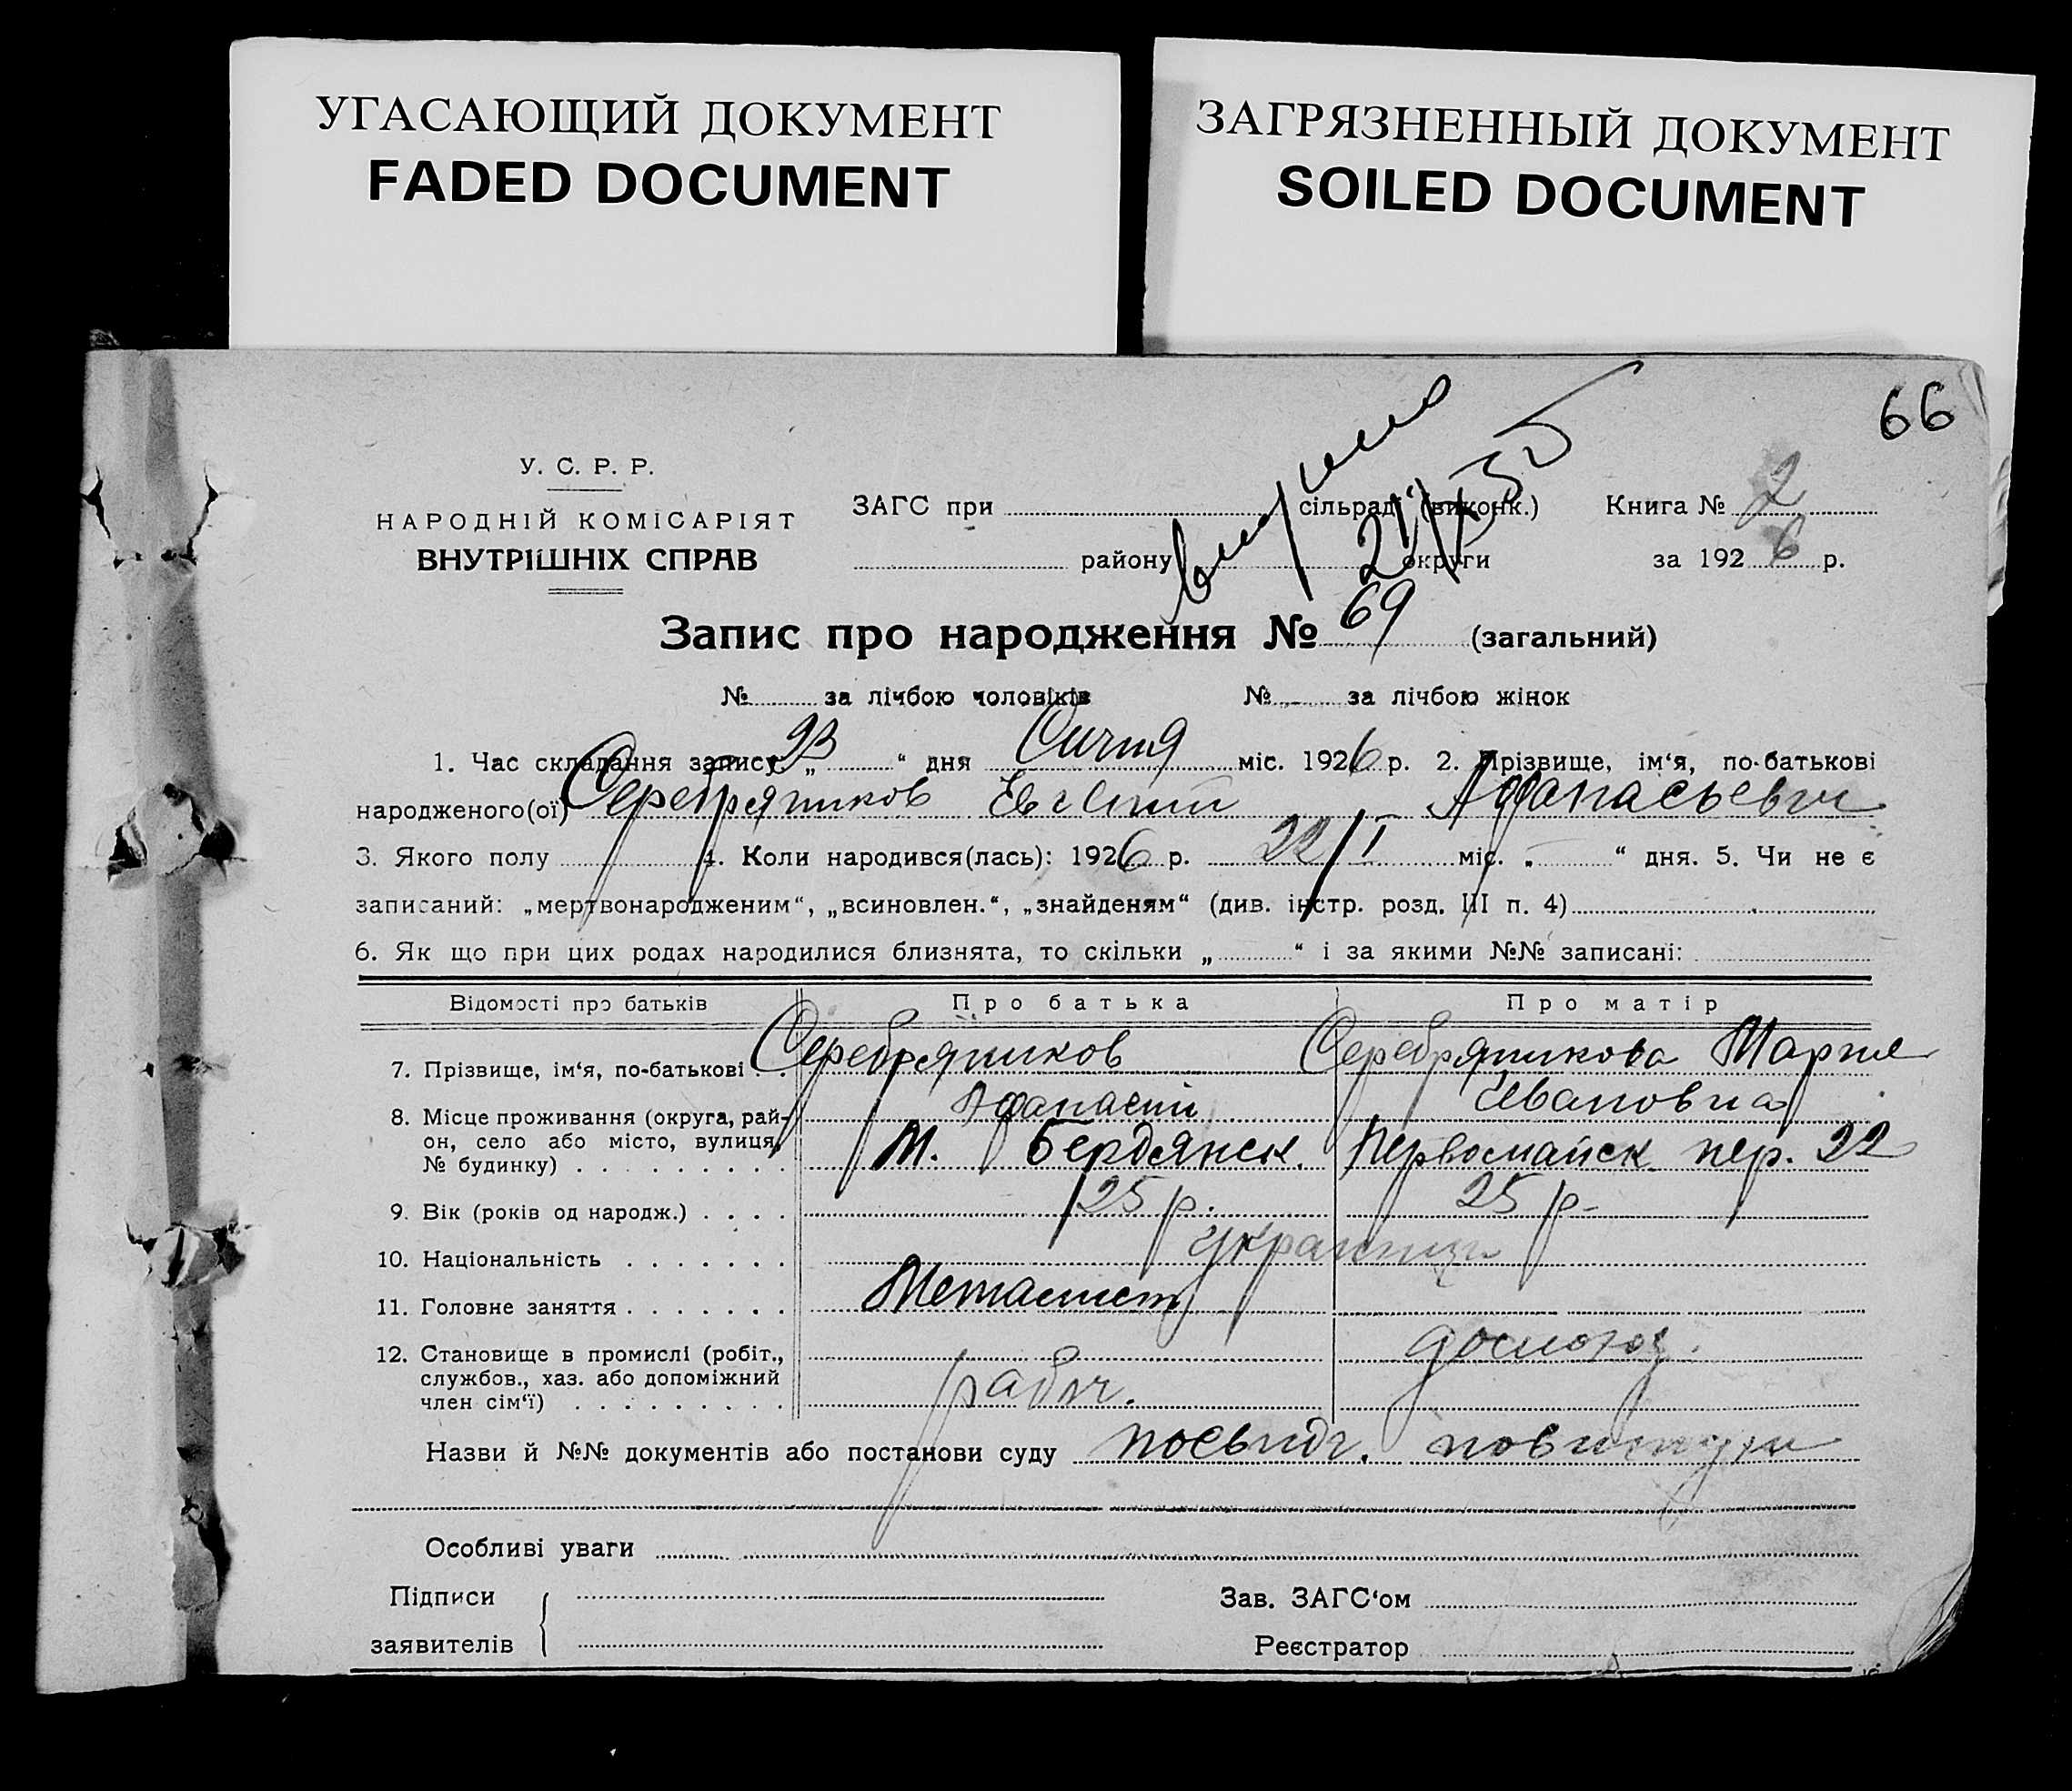 УГАСАЮЩИЙ ДОКУМЕНТ
FADED DOCUMENT
ЗАГРЯЗНЕННЫЙ ДОКУМЕНТ
SOILED DOCUMENT
66
У. С. Р. Р.
НАРОДНІЙ КОМІСАРІЯТ
ВНУТРІШНІХ СПРАВ
ЗАГС при сільраді (виконк.)
району округи
Книга № 2
за 1926 р.
Запис про народження № 69 (загальний)
№ за лічбою чоловіків № за лічбою жінок
1. Час складання запису „23“ дня Січня міс. 1926 р. 2. Прізвище, ім‘я, по-батькові
народженого(ої) Серебряников Евгений Афанасьевич
3. Якого полу 4. Коли народився(лась): 1926 р. 22/I міс. „ “ дня. 5. Чи не є
записаний: „мертвонародженим“, „всиновлен.“, „знайденям“ (див. інстр. розд. III п. 4)
6. Як що при цих родах народилися близнята, то скільки „ “ і за якими №№ записані:
Відомості про батьків Про батька Про матір
7. Прізвище, ім‘я, по-батькові Серебряников Серебряникова Мария
Афанасий Ивановна
8. Місце проживання (округа, рай-
он, село або місто, вулиця,
№ будинку) М. Бердянск. Первомайск. пер. 22
9. Вік (років од народж.) 25 р. 25 р.
10. Національність украинци
11. Головне заняття
12. Становище в промислі (робіт.,
службов., хаз. або допоміжний
член сім‘ї) рабоч.
Назви й №№ документів або постанови суду посвидч. повитухи
Особливі уваги
Підписи
заявителів
Зав. ЗАГС‘ом
Реєстратор